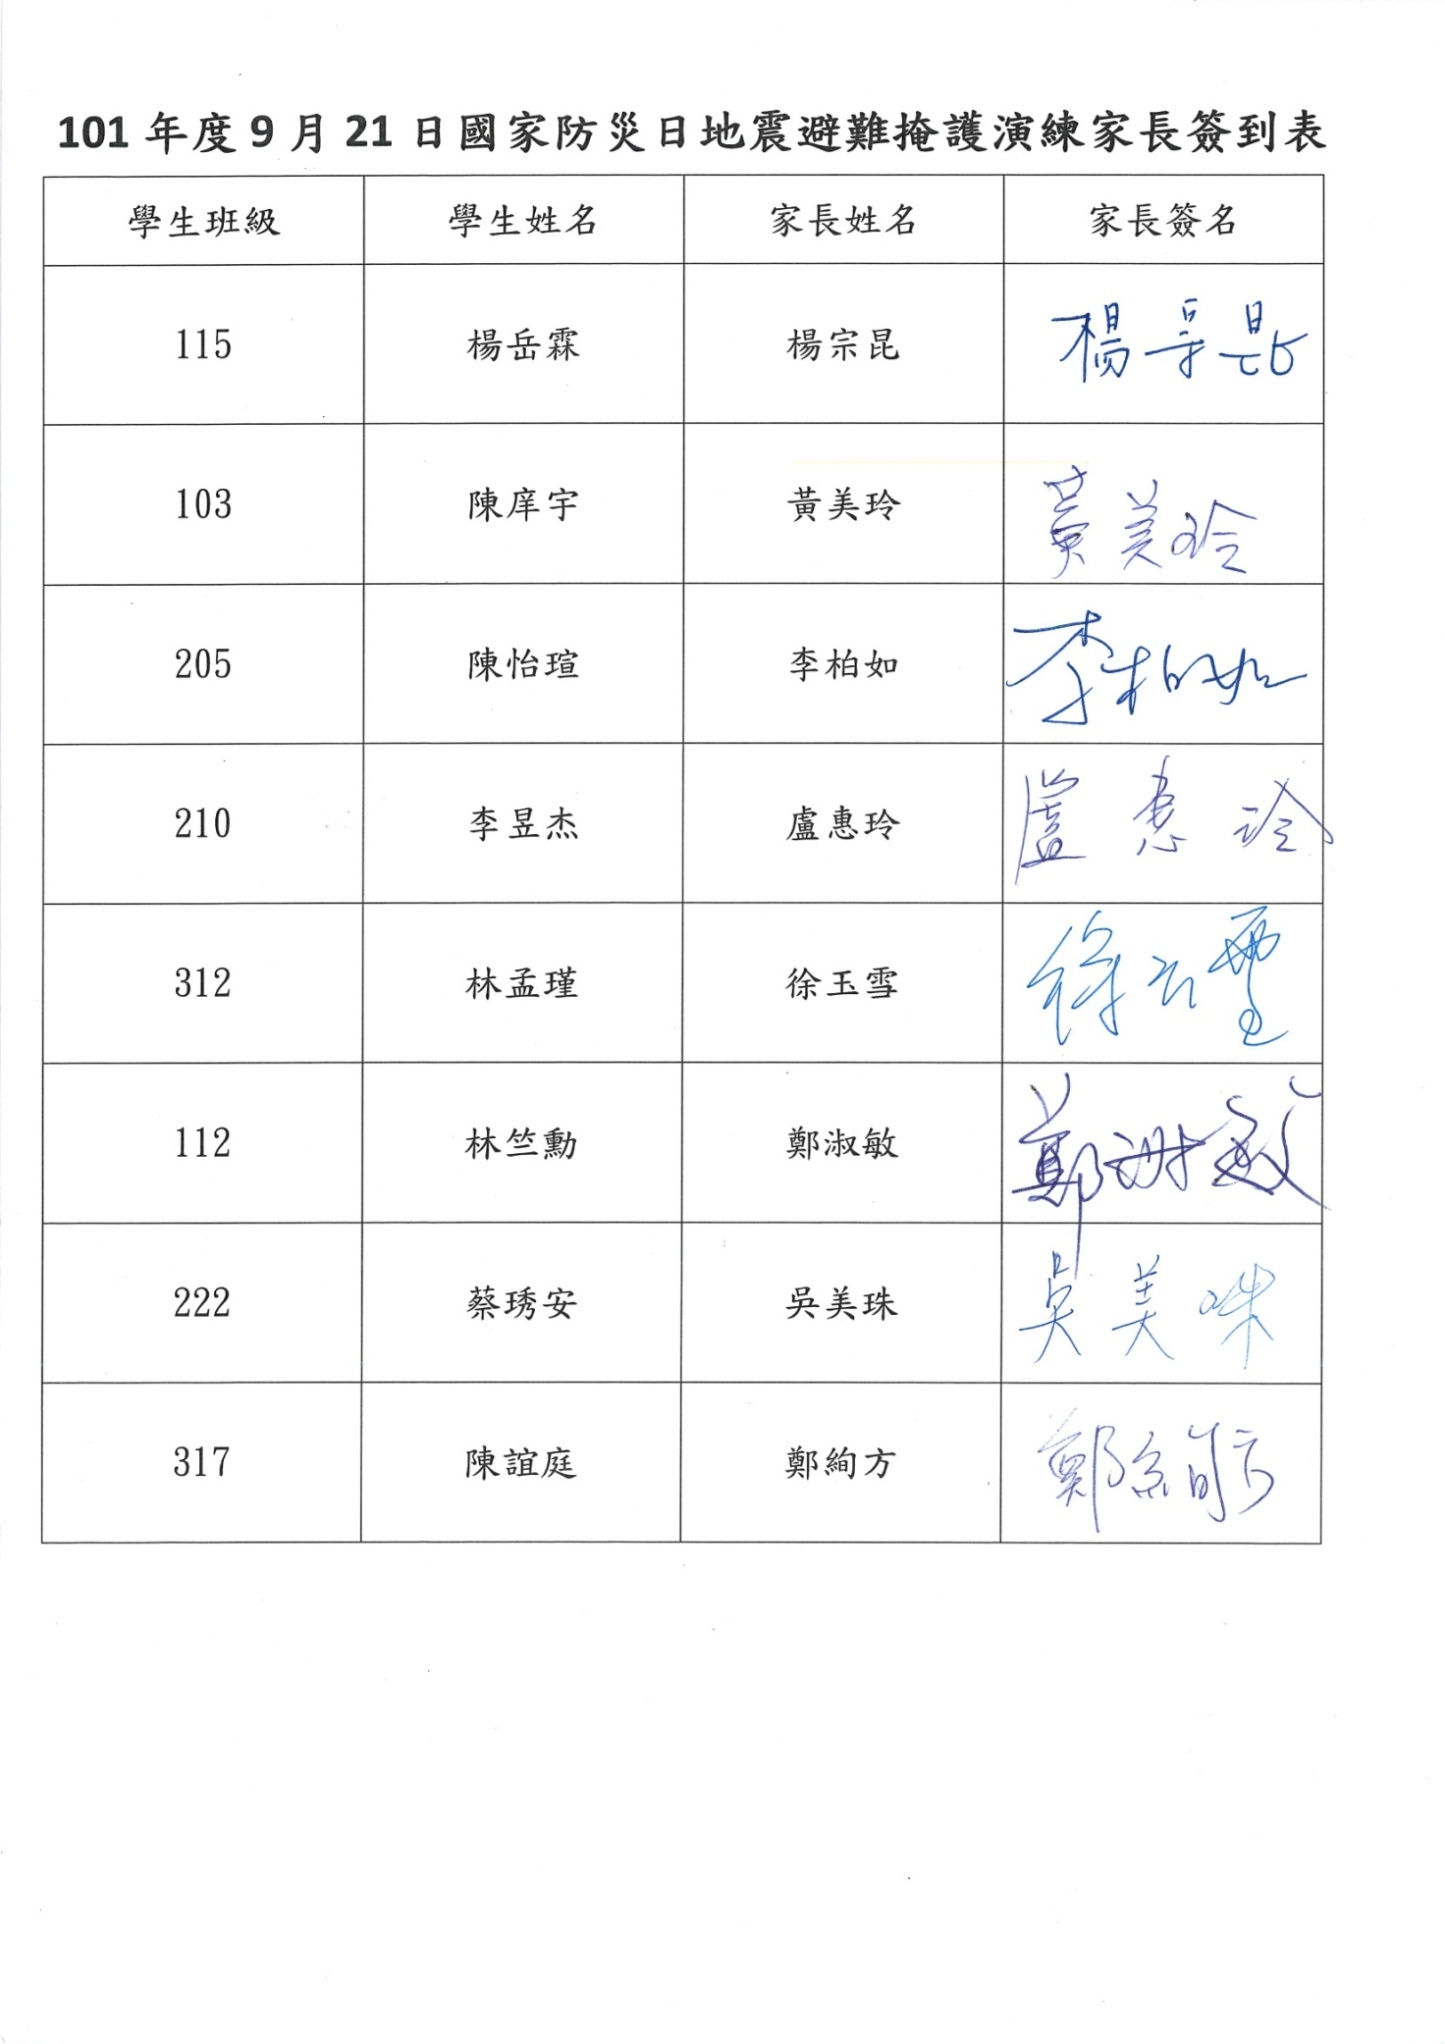 101 年度 9 月 21 日國家防災日地震避難掩護演練家長簽到表
學生班級 學生姓名 家長姓名 家長簽名
115 楊岳霖 楊宗昆 楊宗昆
103 陳庠宇 黃美玲 黃美玲
205 陳怡瑄 李柏如 李柏如
210 李昱杰 盧惠玲 盧惠玲
312 林孟瑾 徐玉雪 徐玉雪
112 林竺勳 鄭淑敏 鄭淑敏
222 蔡琇安 吳美珠 吳美珠
317 陳誼庭 鄭絢方 鄭絢方